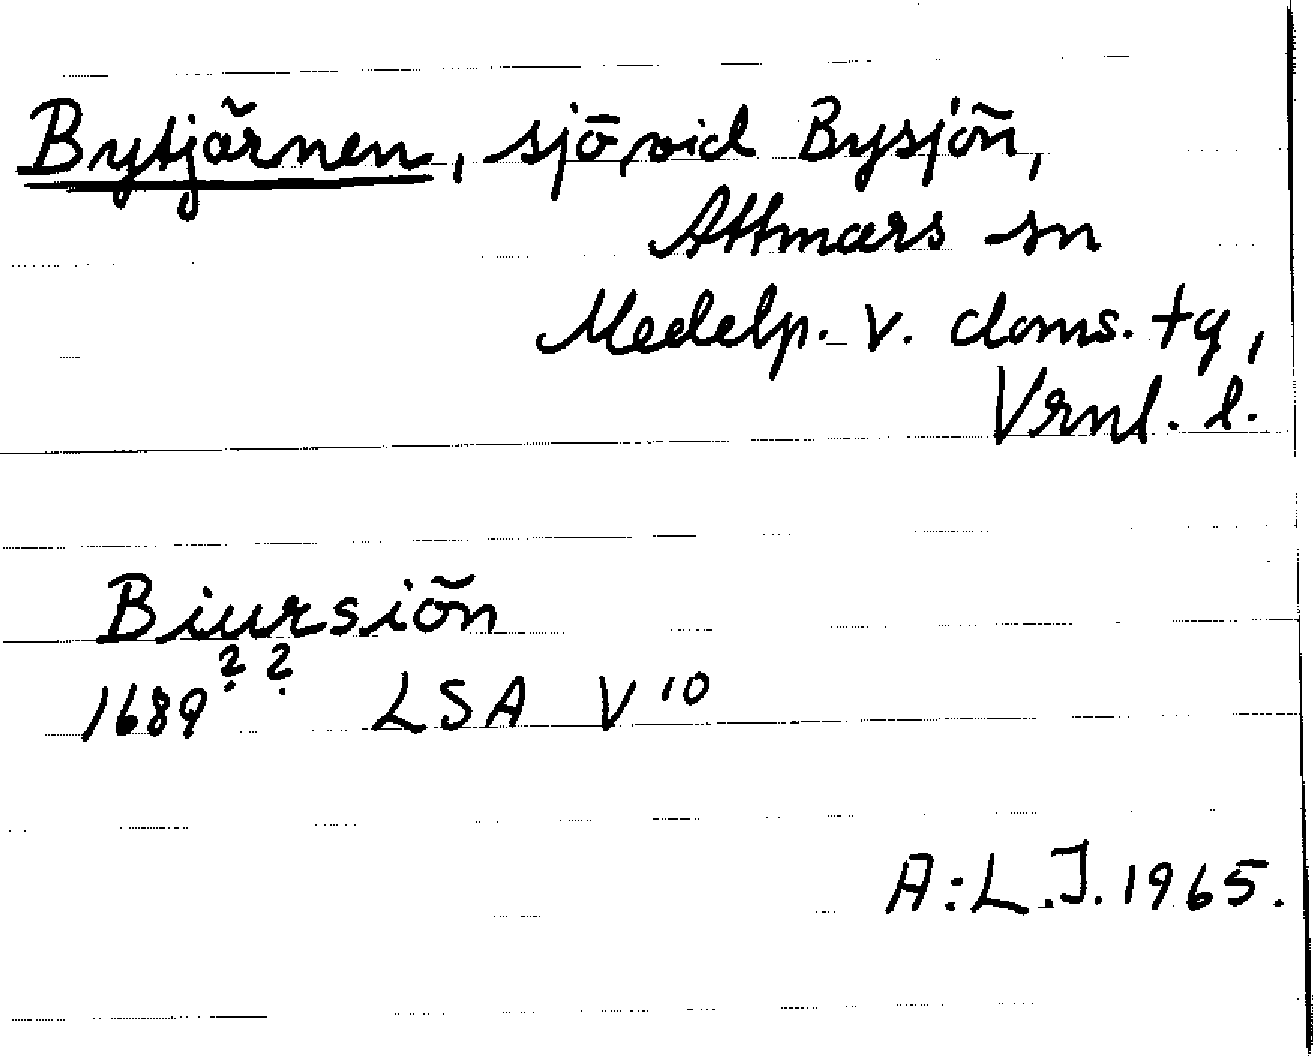 Bytjärnen, sjö vid Bysjön,
Attmars sn
Medelp. V. doms. tg,
Vrnl. l.
Biursiön
1689?? LSA V 10
A:L.J. 1965.